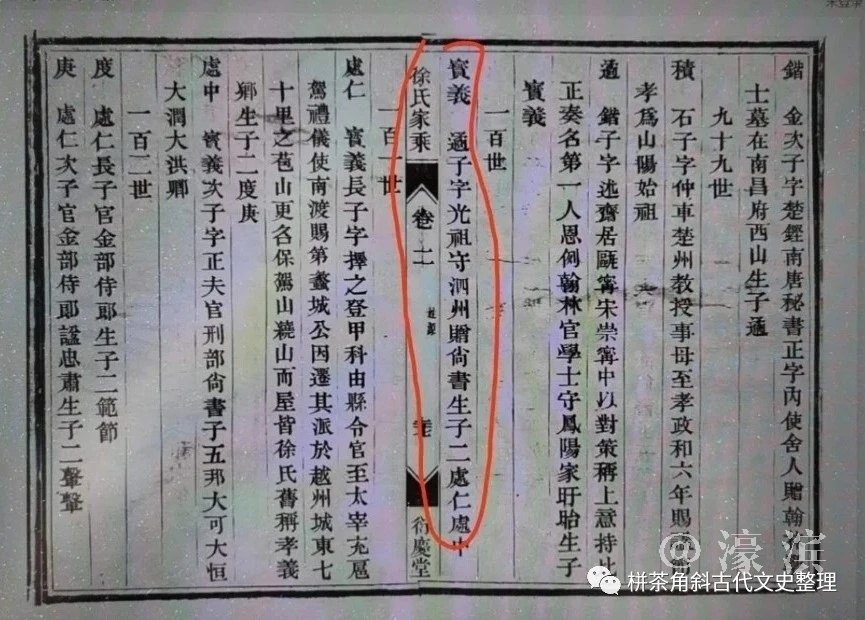 鍇　金次子字楚鏗南唐秘書正字內使舍人贈翰
士墓在南昌府西山生子通
九十九世
積　石子字仲車楚州教授事母至孝政和六年賜
孝為山陽始祖
通　鍇子字述齋居甌寧宋崇寧中以對策稱上意持比
正奏名第一人恩例翰林官學士守鳳陽家盱眙生子
賓義
一百世
賓義　通子字光祖守泗州贈尙書生子二處仁處中
徐氏家乘
卷二
衍慶堂
一百一世
處仁　賓義長子字擇之登甲科由縣令官至太宰充扈
駕禮儀使南渡賜第蠡城公因遷其派於越州城東七
十里之苞山更名保駕山繞山而居皆徐氏舊稱孝義
鄉生子二度庚
處中　賓義次子字正夫官刑部尙書子五邦大可大恒
大潤大洪卿
一百二世
度　處仁長子官金部侍郎生子二範節
庚　處仁次子官金部侍郎諡忠肅生子二
@濠滨
栟茶角斜古代文史整理